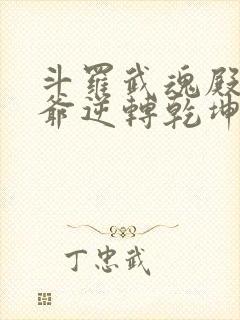 斗羅武魂殿
爺逆轉乾坤
丁忠武